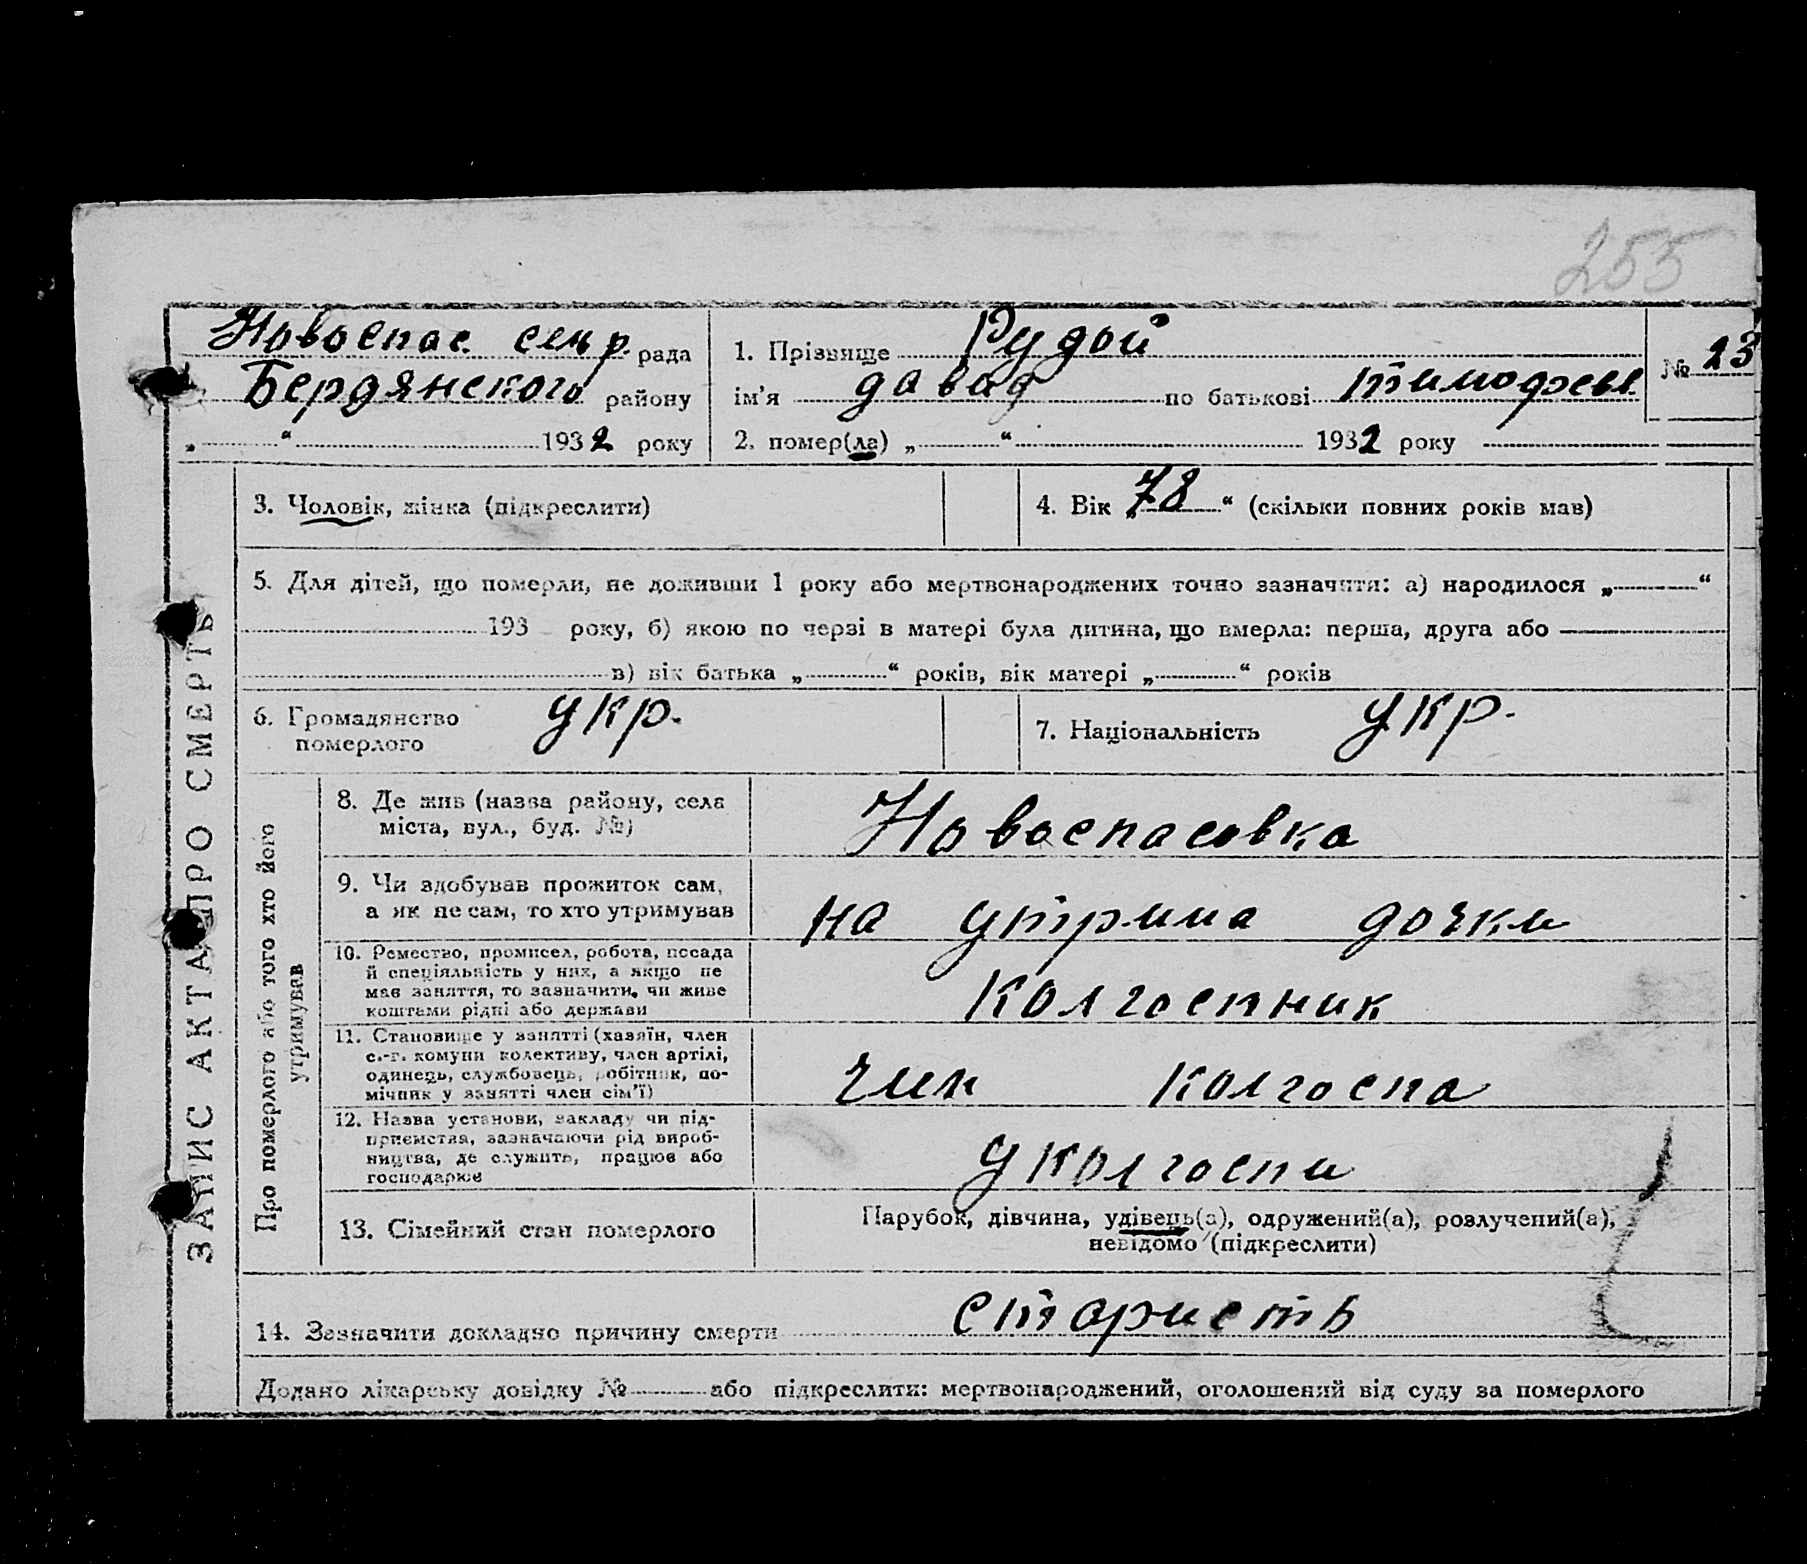 255
Новоспас. сельр. рада
Бердянского району
„ “ 1932 року
1. Прізвище Рудой
ім’я давад по батькові тимофеев.
№ 23
2. помер(ла) „ “ 1932 року
ЗАПИС АКТА ПРО СМЕРТЬ
3. Чоловік, жінка (підкреслити)
4. Вік „78“ (скільки повних років мав)
5. Для дітей, що померли, не доживши 1 року або мертвонароджених точно зазначити: а) народилося „ “
193 року, б) якою по черзі в матері була дитина, що вмерла: перша, друга або
в) вік батька „ “ років, вік матері „ “ років
6. Громадянство
померлого
укр.
7. Національність укр.
Про померлого або того хто його
утримував
8. Де жив (назва району, села
міста, вул., буд. №)
Новоспасовка
9. Чи здобував прожиток сам,
а як не сам, то хто утримував
на утрима дочки
10. Ремество, промисел, робота, посада
й спеціяльність у них, а якщо не
має заняття, то зазначити, чи живе
коштами рідні або держави
колгоспник
11. Становище у занятті (хазяїн, член
с.-г. комуни колективу, член артілі,
одинець, службовець, робітник, по-
мічник у занятті член сім’ї)
член колгоспа
12. Назва установи, закладу чи під-
приємства, зазначаючи рід вироб-
ництва, де служить, працює або
господарює
у колгоспи
13. Сімейний стан померлого
Парубок, дівчина, удівець(а), одружений(а), розлучений(а),
невідомо (підкреслити)
14. Зазначити докладно причину смерти старисть
Додано лікарську довідку № або підкреслити: мертвонароджений, оголошений від суду за померлого